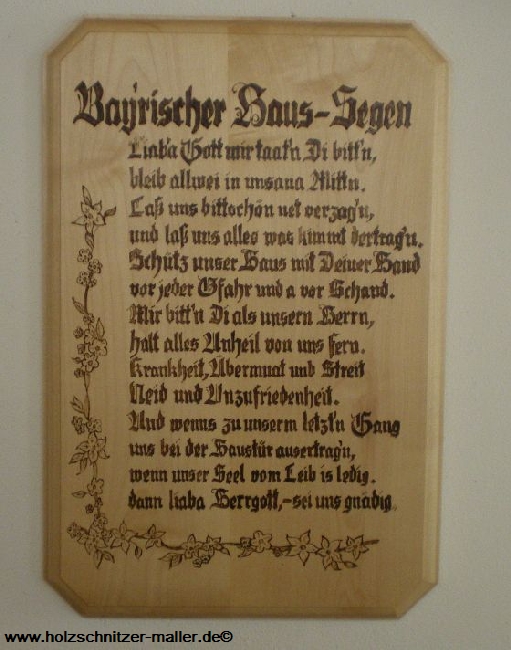 Bayrischer Haus-Segen
Liab'a Gott mir taat'n Di bitt'n,
bleib allwei in unsana Mitt'n.
Laß uns bittschön net verzag'n,
und laß uns alles was kimmt vertrag'n.
Schütz unser Haus mit Deiner Hand
vor jeder Gfahr und a vor Schand.
Mir bitt'n Di als unsern Herrn,
halt alles Unheil von uns fern.
Krankheit, Übermuat und Streit
Neid und Unzufriedenheit.
Und wenns zu unserm letzt'n Gang
uns bei der Haustür ausertrag'n,
wenn unser Seel vom Leib is ledig.
dann liaba Herrgott,-sei uns gnädig.
www.holzschnitzer-maller.de©